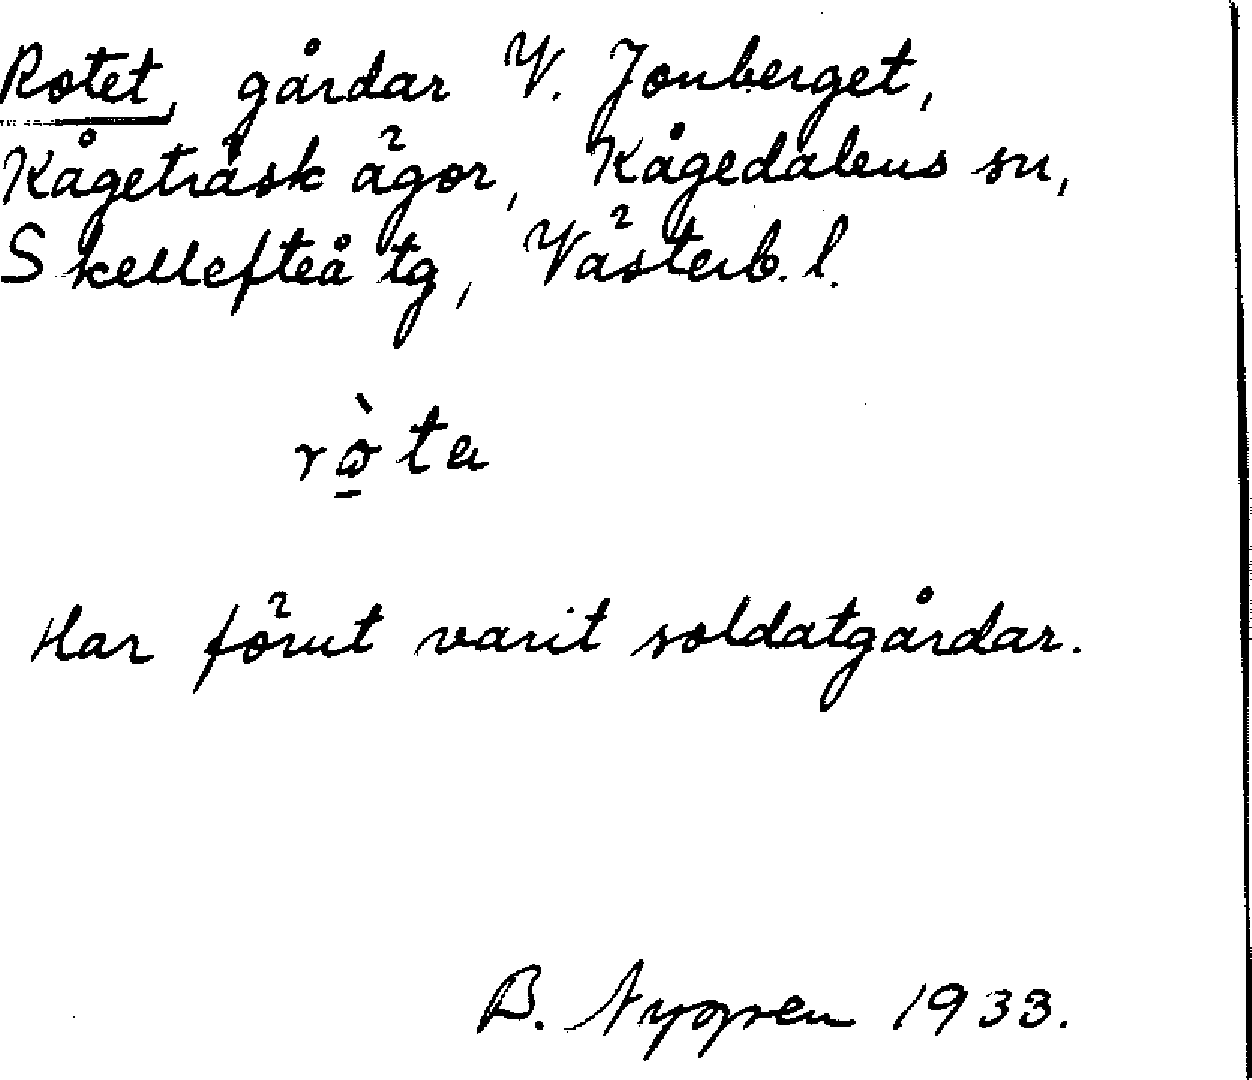 Rotet, gårdar V. Jonberget,
Kågeträsk ägor, Kågedalens sn,
Skellefteå tg, Västerb. l.
Har förut varit soldatgårdar.
B. Nygren 1933.